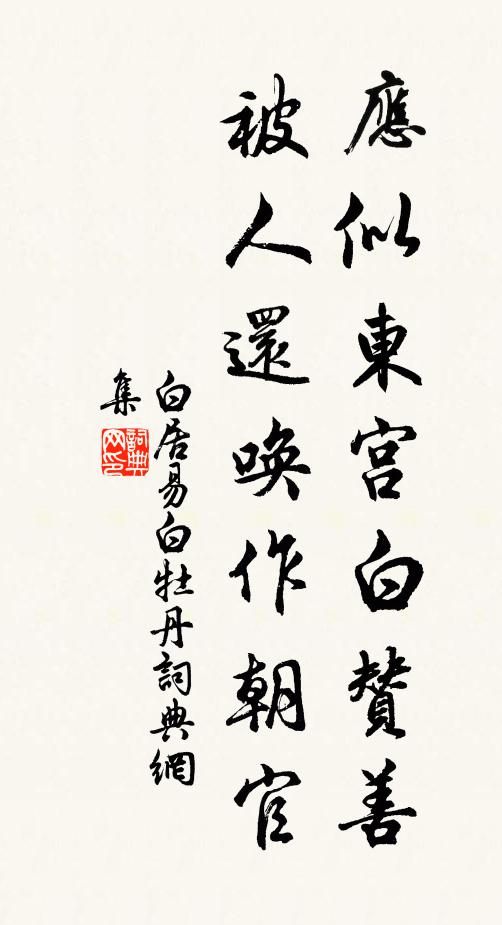 應似東宮白贊善
被人還喚作朝官
白居易白牡丹詞典網
集
詞典网印